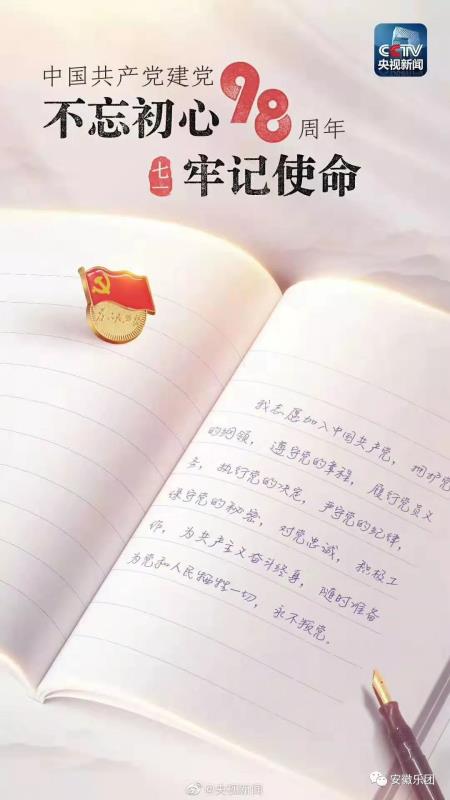 CCTV
央视新闻
中国共产党建党98周年
不忘初心
七一
牢记使命
为人民服务
我志愿加入中国共产党,拥护党
的纲领,遵守党的章程,履行党员义
务,执行党的决定,严守党的纪律,
保守党的秘密,对党忠诚,积极工
作,为共产主义奋斗终身,随时准备
为党和人民牺牲一切,永不叛党。
@央视新闻
安徽乐团